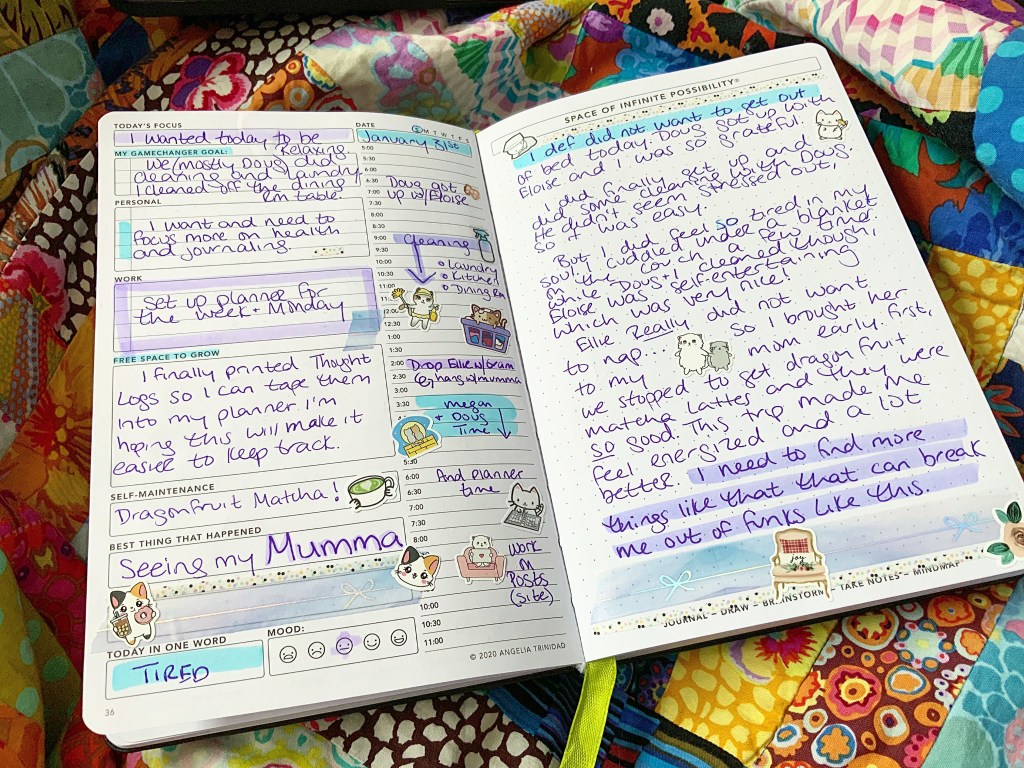 TODAY'S FOCUS
I wanted today to be
relaxing
MY GAMECHANGER GOAL:
We/mostly Doug did
cleaning and laundry.
I cleaned off the dining
rm table.
PERSONAL
I want and need to
focus more on health
and journaling
WORK
set up planner for
the week + Monday
FREE SPACE TO GROW
I finally printed Thought
Logs so I can tape them
into my planner. I'm
hoping this will make it
easier to keep track.
SELF-MAINTENANCE
Dragonfruit Matcha!
BEST THING THAT HAPPENED
Seeing my Mumma
TODAY IN ONE WORD
TIRED
MOOD:
36
DATE
S M T W T F S
January 31st
5:00
5:30
6:00
6:30
7:00
Doug got
up w/Eloise
7:30
8:00
8:30
9:00
cleaning
9:30
10:00
Laundry
10:30
Kitchen
11:00
Dining Rm
12:00
12:30
1:00
1:30
2:00
Drop Ellie w/Gram
2:30
hang w/mumma
3:00
3:30
megan
+ Doug
Time
5:30
6:00
And planner
6:30
time
7:00
7:30
8:00
Work
on
Posts
(site)
10:00
10:30
11:00
© 2020 ANGELIA TRINIDAD
SPACE OF INFINITE POSSIBILITY®
I def did not want to get out
of bed today. Doug got up with
Eloise and I was so grateful.
I did finally get up and
did some cleaning with Doug.
He didn't seem stressed out,
so it was easy.
But, I did feel so tired in my
soul. I cuddled under a blanket
on the couch a few times
while Doug + I cleaned though,
Eloise was self-entertaining
which was very nice!
Ellie Really did not want
to nap... so I brought her
to my mom early. First,
we stopped to get dragonfruit
matcha lattes and they were
so good. This trip made me
feel energized and a lot
better. I need to find more
things like that that can break
me out of funks like this.
joy
JOURNAL - DRAW - BRAINSTORM - TAKE NOTES - MINDMAP